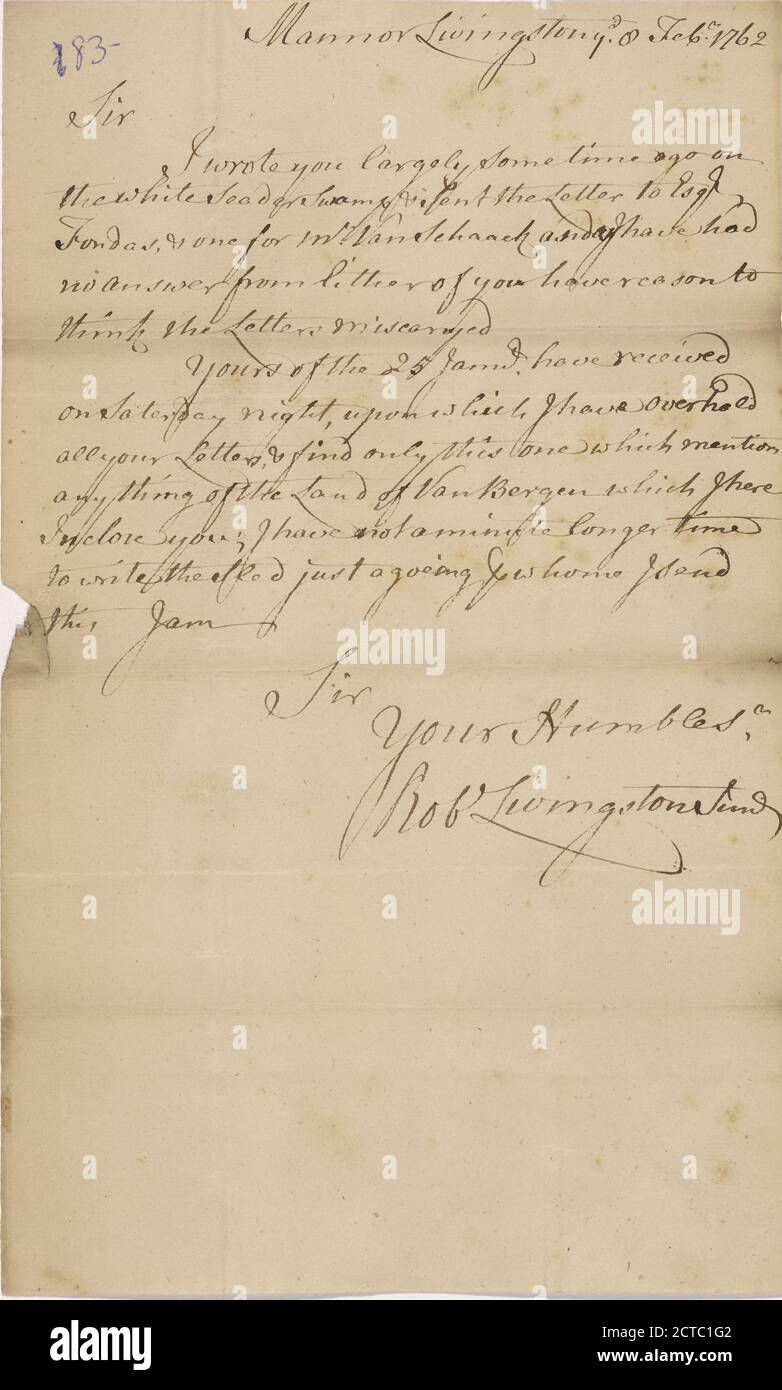 183-
Mannor Livingston yᵈ. 8 Febʳ. 1762
Sir
I wrote you largely some time ago on
the white Seader Swamp & sent the Letter to Esqʳ
Fondas, & one for Mʳ Van Schaack and as I have had
no answer from Either of you have reason to
think the Letters miscarryed
Yours of the 25 Janʸ. have received
on Saterday night, upon which I have overhold
all your Letters, & find only this one which mention
any thing of the Land of Van Bergen which I here
Inclose you; I have not a minute longer time
to write the Sled just a goeing by whome I send
this I am
Sir
Your Humble Sʳ.
Robᵗ Livingston Junʳ
alamy
Image ID: 2CTC1G2
www.alamy.com